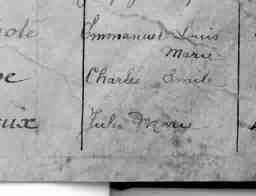 ole Emmanuel Louis
Marie
Charles Emile
ux Jules Marie